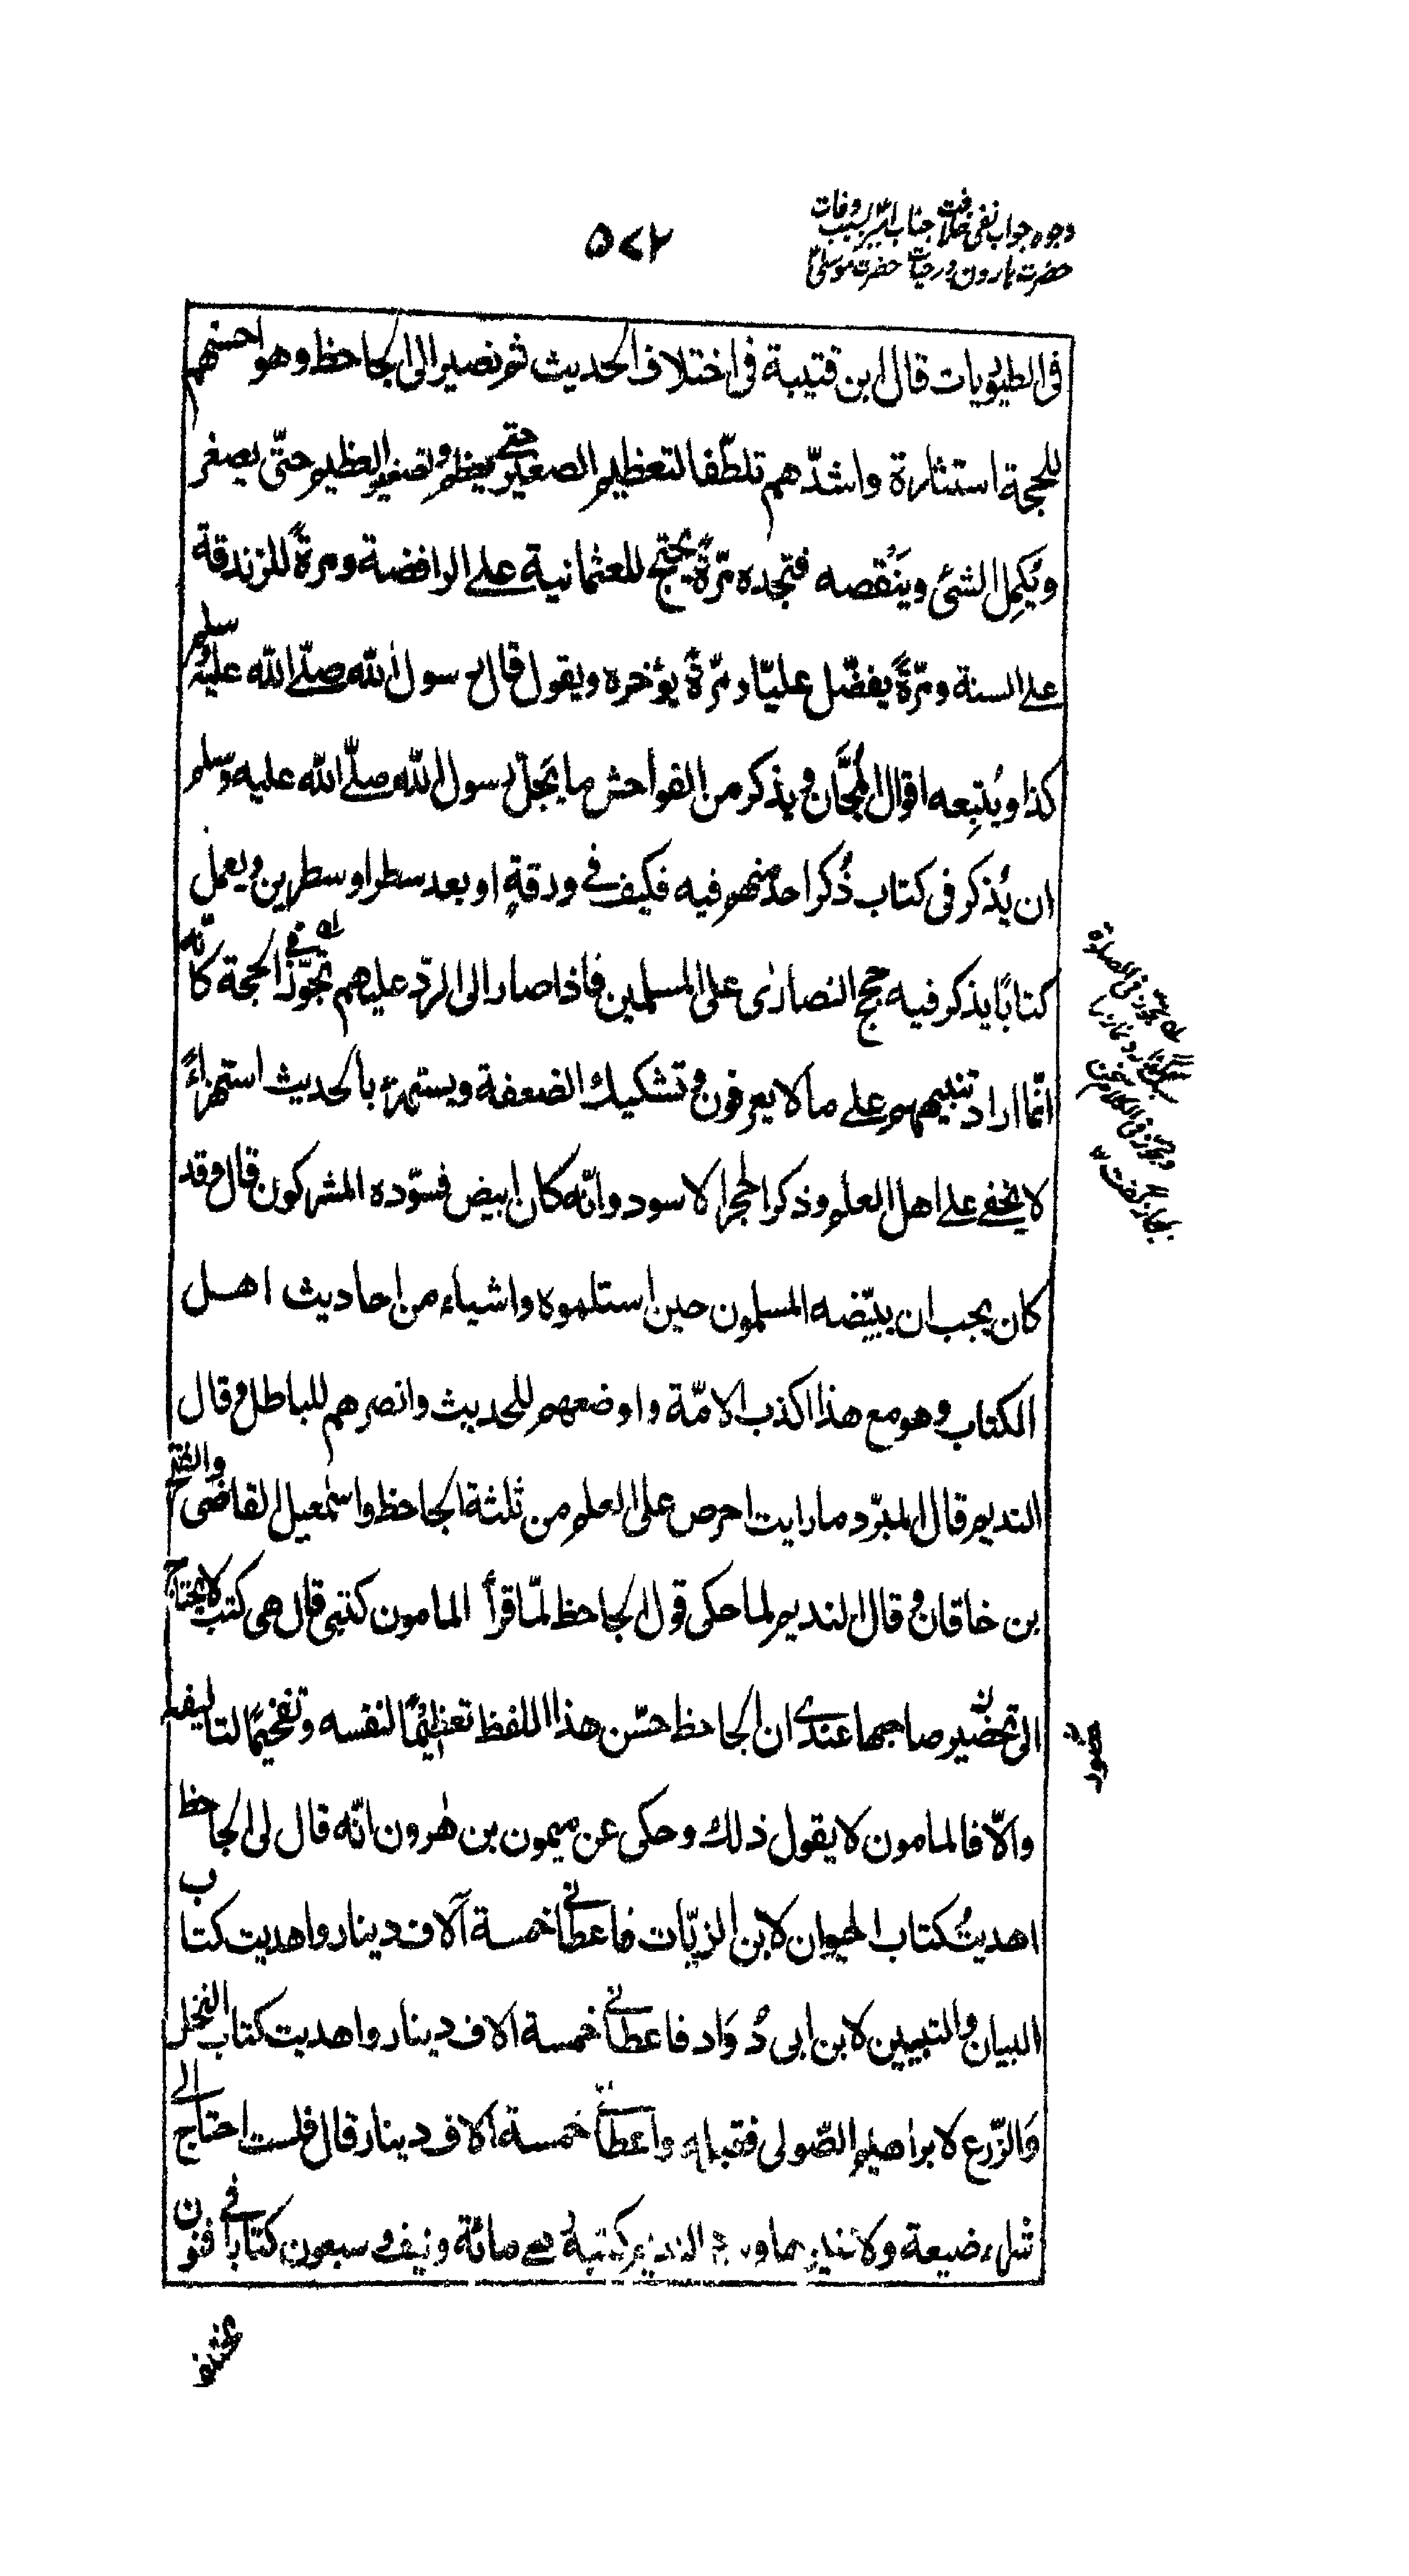 وجوه جواب نفی خلافت جناب امیر بسبب وفات
حضرت هارون در حیات حضرت موسیٰ
۵۷۲
فی الطیوریات قال ابن قتیبة فی اختلاف الحدیث ثم نصیر الی الجاحظ وهو احسنهم
للحجة استثارة واشدّهم تلطّفا لتعظیم الصغیر حتی یعظم وتصغیر العظیم حتّی یصغر
ویُکمِل الشئ ویَنقُصه فتجده مرّةً یحتج للعثمانیة علی الرافضة ومرةً للزندقة
علی السنة ومرّةً یفضّل علیّا ومرّةً یؤخره ویقول قال رسول الله صلّی الله علیه وسلم
کذا ویُتبِعه اقوال المُجَّان ویذکر من الفواحش ما یَجلّ رسول الله صلّی الله علیه وسلم
ان یُذکر فی کتاب ذُکر احد منهم فیه فکیف فی ورقةٍ او بعد سطر او سطرین ویعمل
کتابًا یذکر فیه حجج النصاریٰ علی المسلمین فاذا صار الی الردّ علیهم تجوّز فی الحجة کانّه
انّما اراد تنبیههم علی ما لا یعرفون وتشکیك الضعفة ویستهزئ بالحدیث استهزاءً
لا یخفی علی اهل العلم وذکر الحجر الاسود وانّه کان ابیض فسوّده المشرکون قال وقد
کان یجب ان یبیّضه المسلمون حین استلموه واشیاء من احادیث اهل
الکتاب وهو مع هذا اکذب الامّة واوضعهم للحدیث وانصرهم للباطل وقال
الندیم قال المبرّد ما رایت احرص علی العلم من ثلثة الجاحظ واسمٰعیل القاضی والفتح
بن خاقان وقال الندیم لما حکی قول الجاحظ لمّا قرأ المامون کتبی قال هی کتب لا یحتاج
الی تحضیر صاحبها عندی ان الجاحظ حسّن هذا اللفظ تعظیمًا لنفسه وتفخیمًا لتالیفه
والّا فالمامون لا یقول ذلك وحکی عن میمون بن هٰرون انّه قال لی الجاحظ
اهدیتُ کتاب الحیوان لابن الزیّات فاعطانی خمسة آلاف دینار واهدیت کتاب
البیان والتبیین لابن ابی دُوَاد فاعطانی خمسة الاف دینار واهدیت کتاب النخل
وَالزّرع لابراهیم الصّولی فقبله واعطانی خمسة آلاف دینار قال فلست احتاج الی
شراء ضیعة ولا غیرها وسرد الندیم کتبهُ وهی مائة ونیف وسبعون کتابا فی فنون